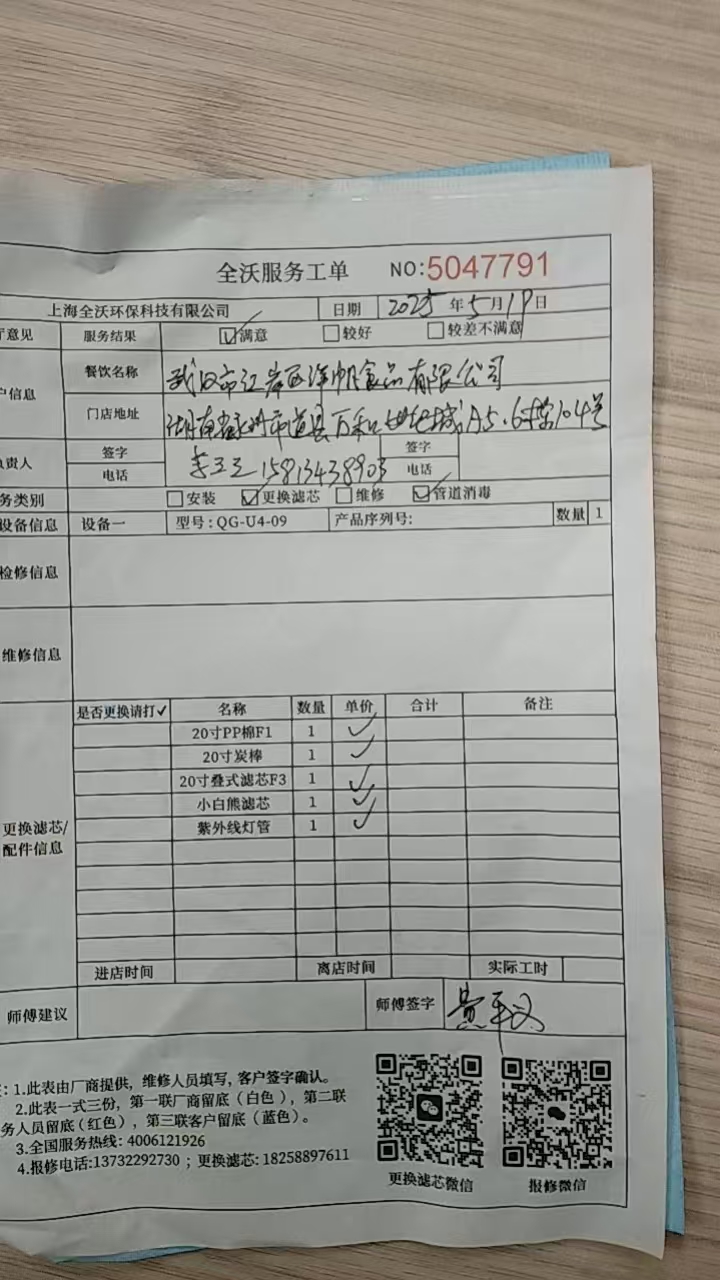 全沃服务工单 NO:5047791
上海全沃环保科技有限公司 日期 2025年5月19日
意见 服务结果 ☑满意 □较好 □较差不满意
户信息 餐饮名称 武汉市江岸区洋帆食品有限公司
门店地址 湖南省永州市道县万和 地城A5.6栋104号
负责人 签字 李 签字
电话 15813438903 电话
务类别 □安装 ☑更换滤芯 □维修 ☑管道消毒
设备信息 设备一 型号:QG-U4-09 产品序列号: 数量 1
检修信息
维修信息
是否更换请打✓ 名称 数量 单价 合计 备注
20寸PP棉F1 1 ✓
20寸炭棒 1 ✓
20寸叠式滤芯F3 1 ✓
小白熊滤芯 1 ✓
紫外线灯管 1 ✓
更换滤芯/
配件信息
进店时间 离店时间 实际工时
师傅建议 师傅签字 黄平
:1.此表由厂商提供, 维修人员填写, 客户签字确认。
2.此表一式三份, 第一联厂商留底(白色), 第二联
务人员留底(红色), 第三联客户留底(蓝色)。
3.全国服务热线: 4006121926
4.报修电话:13732292730 ; 更换滤芯: 18258897611
更换滤芯微信 报修微信